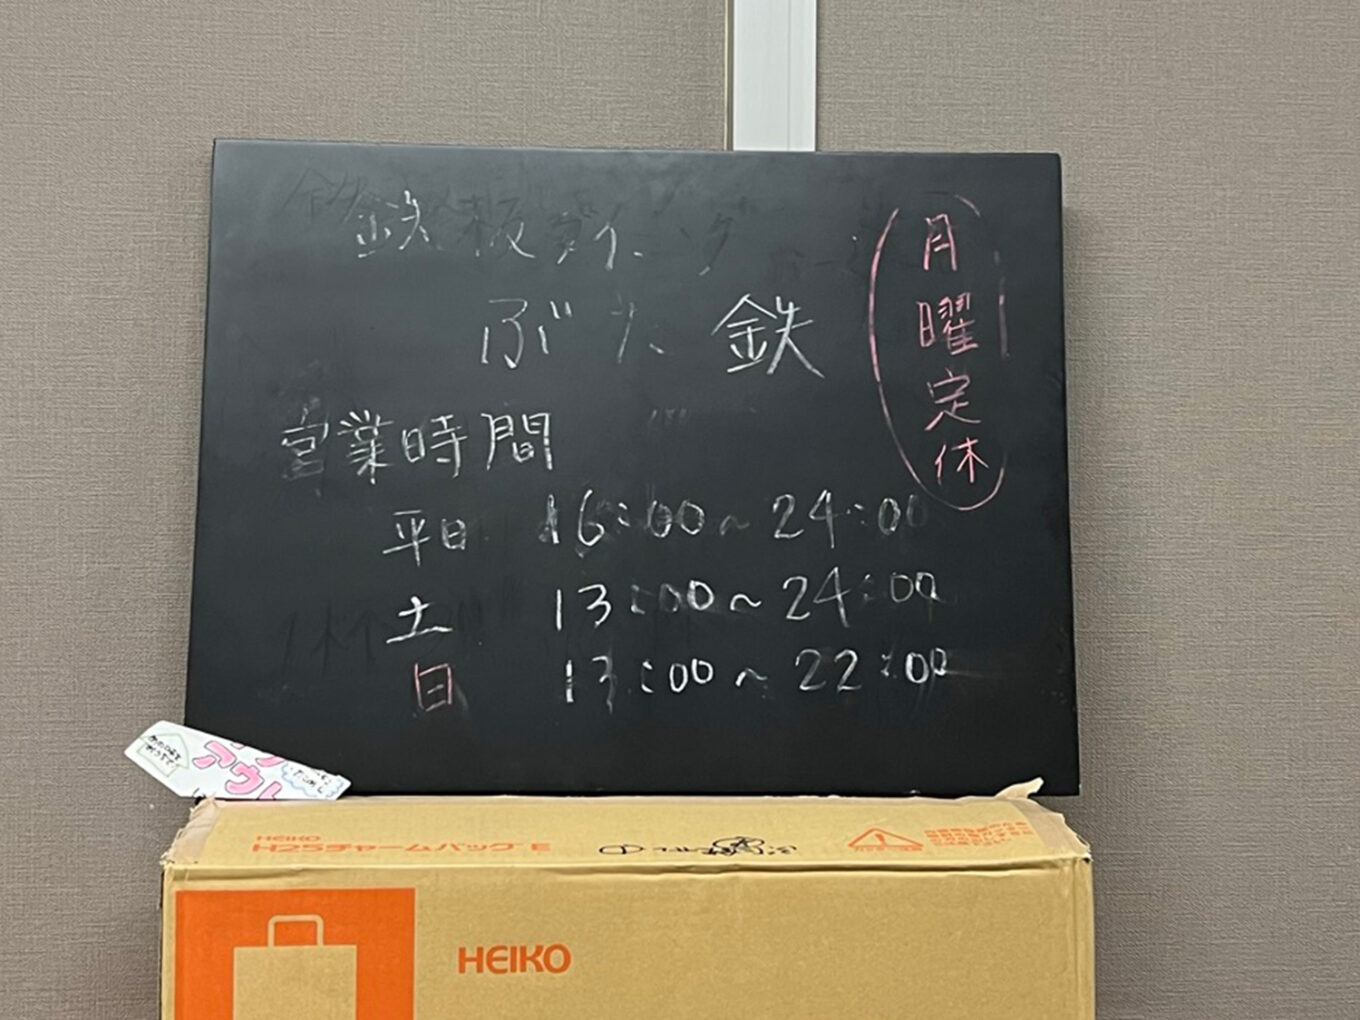 鉄板ダイニング
ぶた鉄
月曜定休
営業時間
平日 16:00~24:00
土 13:00~24:00
日 13:00~22:00
アウト
HEIKO
H25チャームバッグ E
HEIKO